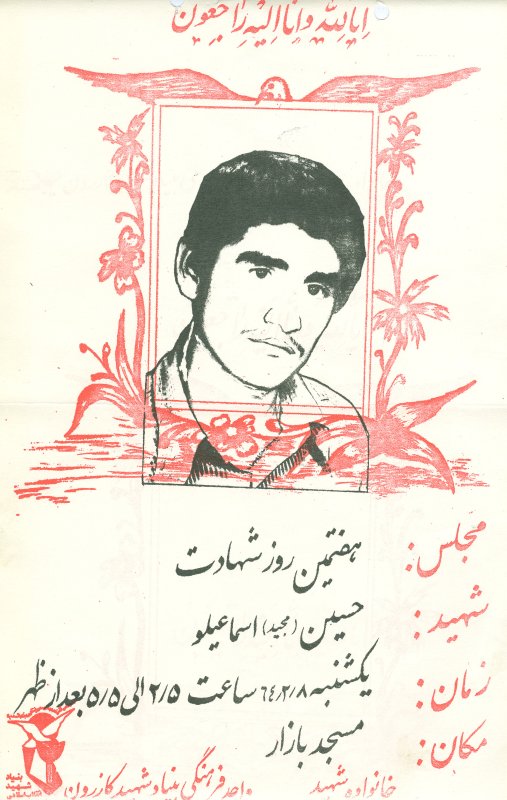 انا لله و انا الیه راجعون
مجلس: هفتمین روز شهادت
شهید: حسین (مجید) اسماعیلو
زمان: یکشنبه ۶۴/۲/۸ ساعت ۲/۵ الی ۵/۵ بعد از ظهر
مکان: مسجد بازار
خانواده شهید واحد فرهنگی بنیاد شهید کازرون
بنیاد
شهید